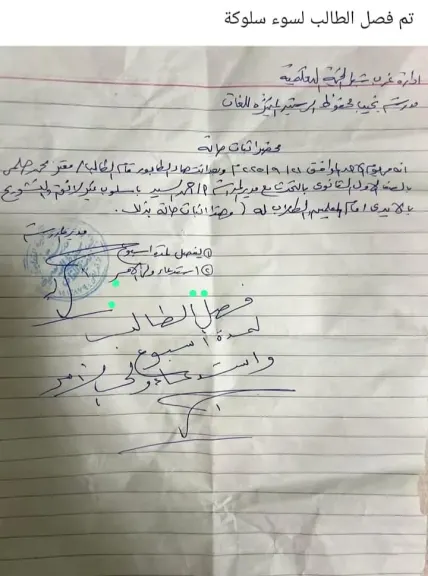 تم فصل الطالب لسوء سلوكة
ادارة غرب شبرا الخيمة التعليمية
مدرسة نجيب محفوظ الرسمية المتميزة للغات
محضر اثبات حالة
انه فى يوم الاحد الموافق ٢٠٢٥/٩/٢١ وبعد انتهاء الطابور قام الطالب / معتز محمد حلمى
بالصف الاول الثانوى بالتحدث مع مدير المدرسة أ/ احمد السيد باسلوب غير لائق والتشويح
بالايدى امام المعلمين والطلاب له ( وهذا اثبات حالة بذلك .
مدير المدرسة
① يفصل لمدة اسبوع
② استدعاء ولى الامر
فصل الطالب
لمدة أسبوع
واستدعاء ولى الأمر